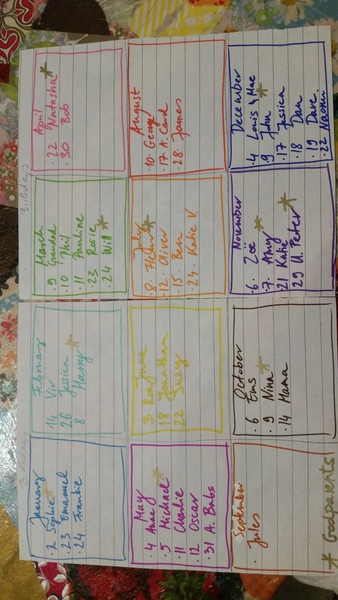 January
· 2 Sophie
· 23 Emanuel
· 24 Frankie
February
14 Viv
26 Jessica
8 Harry
March
· 9 Grandad
· 10 Phil
· 11 Pauline
· 23 Rosie
· 24 Will
April
22 Natasha
· 30 Bob
May
· 4 Anna
· 5 Michael
· 11 Charlie
· 12 Oscar
· 31 A. Babs
June
3 Rae
18 Jonathan
22 Suzy
July
· 8 Helen
· 12 Oliver
· 15 Ben
· 24 Katie V.
August
· 10 George
· 17 A. Carol
· 28 James
September
· Jules
October
· 6 Ems
· 9 Nina
· 14 Mama
November
· 6 Zoë
· 7 Amy
21 Katie
· 29 U. Peter
December
· 4 Louis & Mae
· 9 John
· 17 Jessica
· 18 Dan
· 19 Dave
· 22 Naomi
Godparents